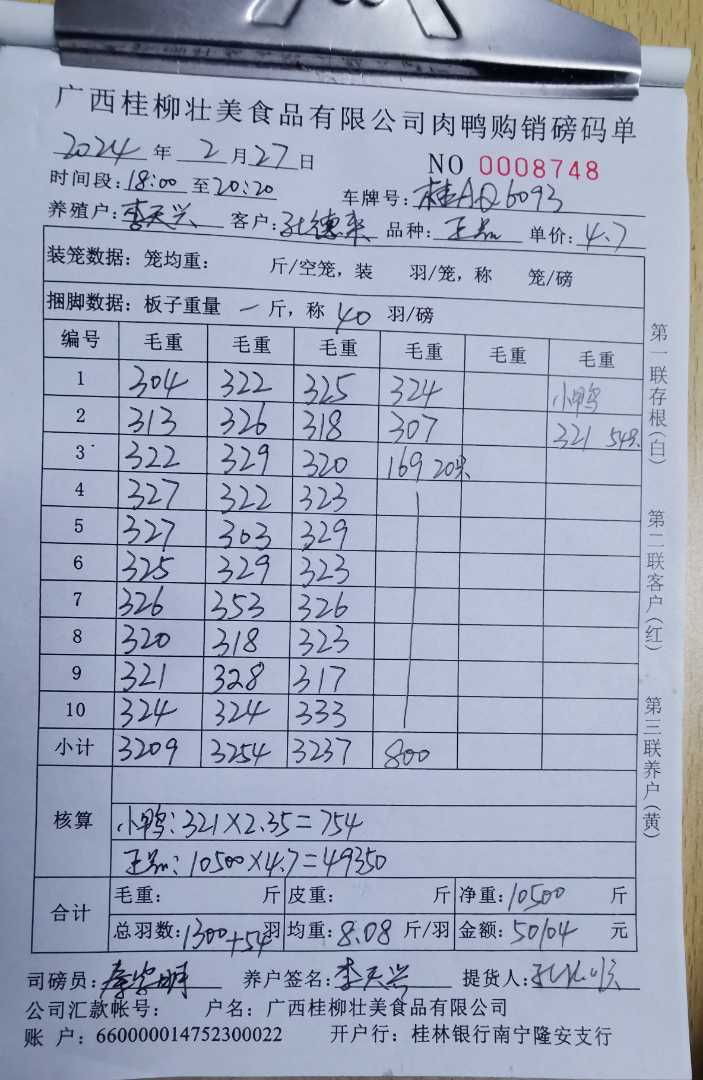 广西桂柳壮美食品有限公司肉鸭购销磅码单
2024 年 2 月 27 日 NO 0008748
时间段: 18:00 至 20:20 车牌号: 桂AQ6093
养殖户: 李天兴 客户: 孔德来 品种: 正品 单价: 4.7
装笼数据: 笼均重: 斤/空笼, 装 羽/笼, 称 笼/磅
捆脚数据: 板子重量 一 斤, 称 40 羽/磅
编号 毛重 毛重 毛重 毛重 毛重 毛重
1 304 322 325 324 小鸭
2 313 326 318 307 321 54只
3 322 329 320 169 20只
4 327 322 323
5 327 303 329
6 325 329 323
7 326 353 326
8 320 318 323
9 321 328 317
10 324 324 333
小计 3209 3254 3237 800
核算
小鸭: 321×2.35=754
正品: 10500×4.7=49350
合计
毛重: 斤 皮重: 斤 净重: 10500 斤
总羽数: 1300+54 羽 均重: 8.08 斤/羽 金额: 50104 元
司磅员: 养户签名: 李天兴 提货人:
公司汇款帐号: 户名: 广西桂柳壮美食品有限公司
账 户: 660000014752300022 开户行: 桂林银行南宁隆安支行
第一联存根(白) 第二联客户(红) 第三联养户(黄)